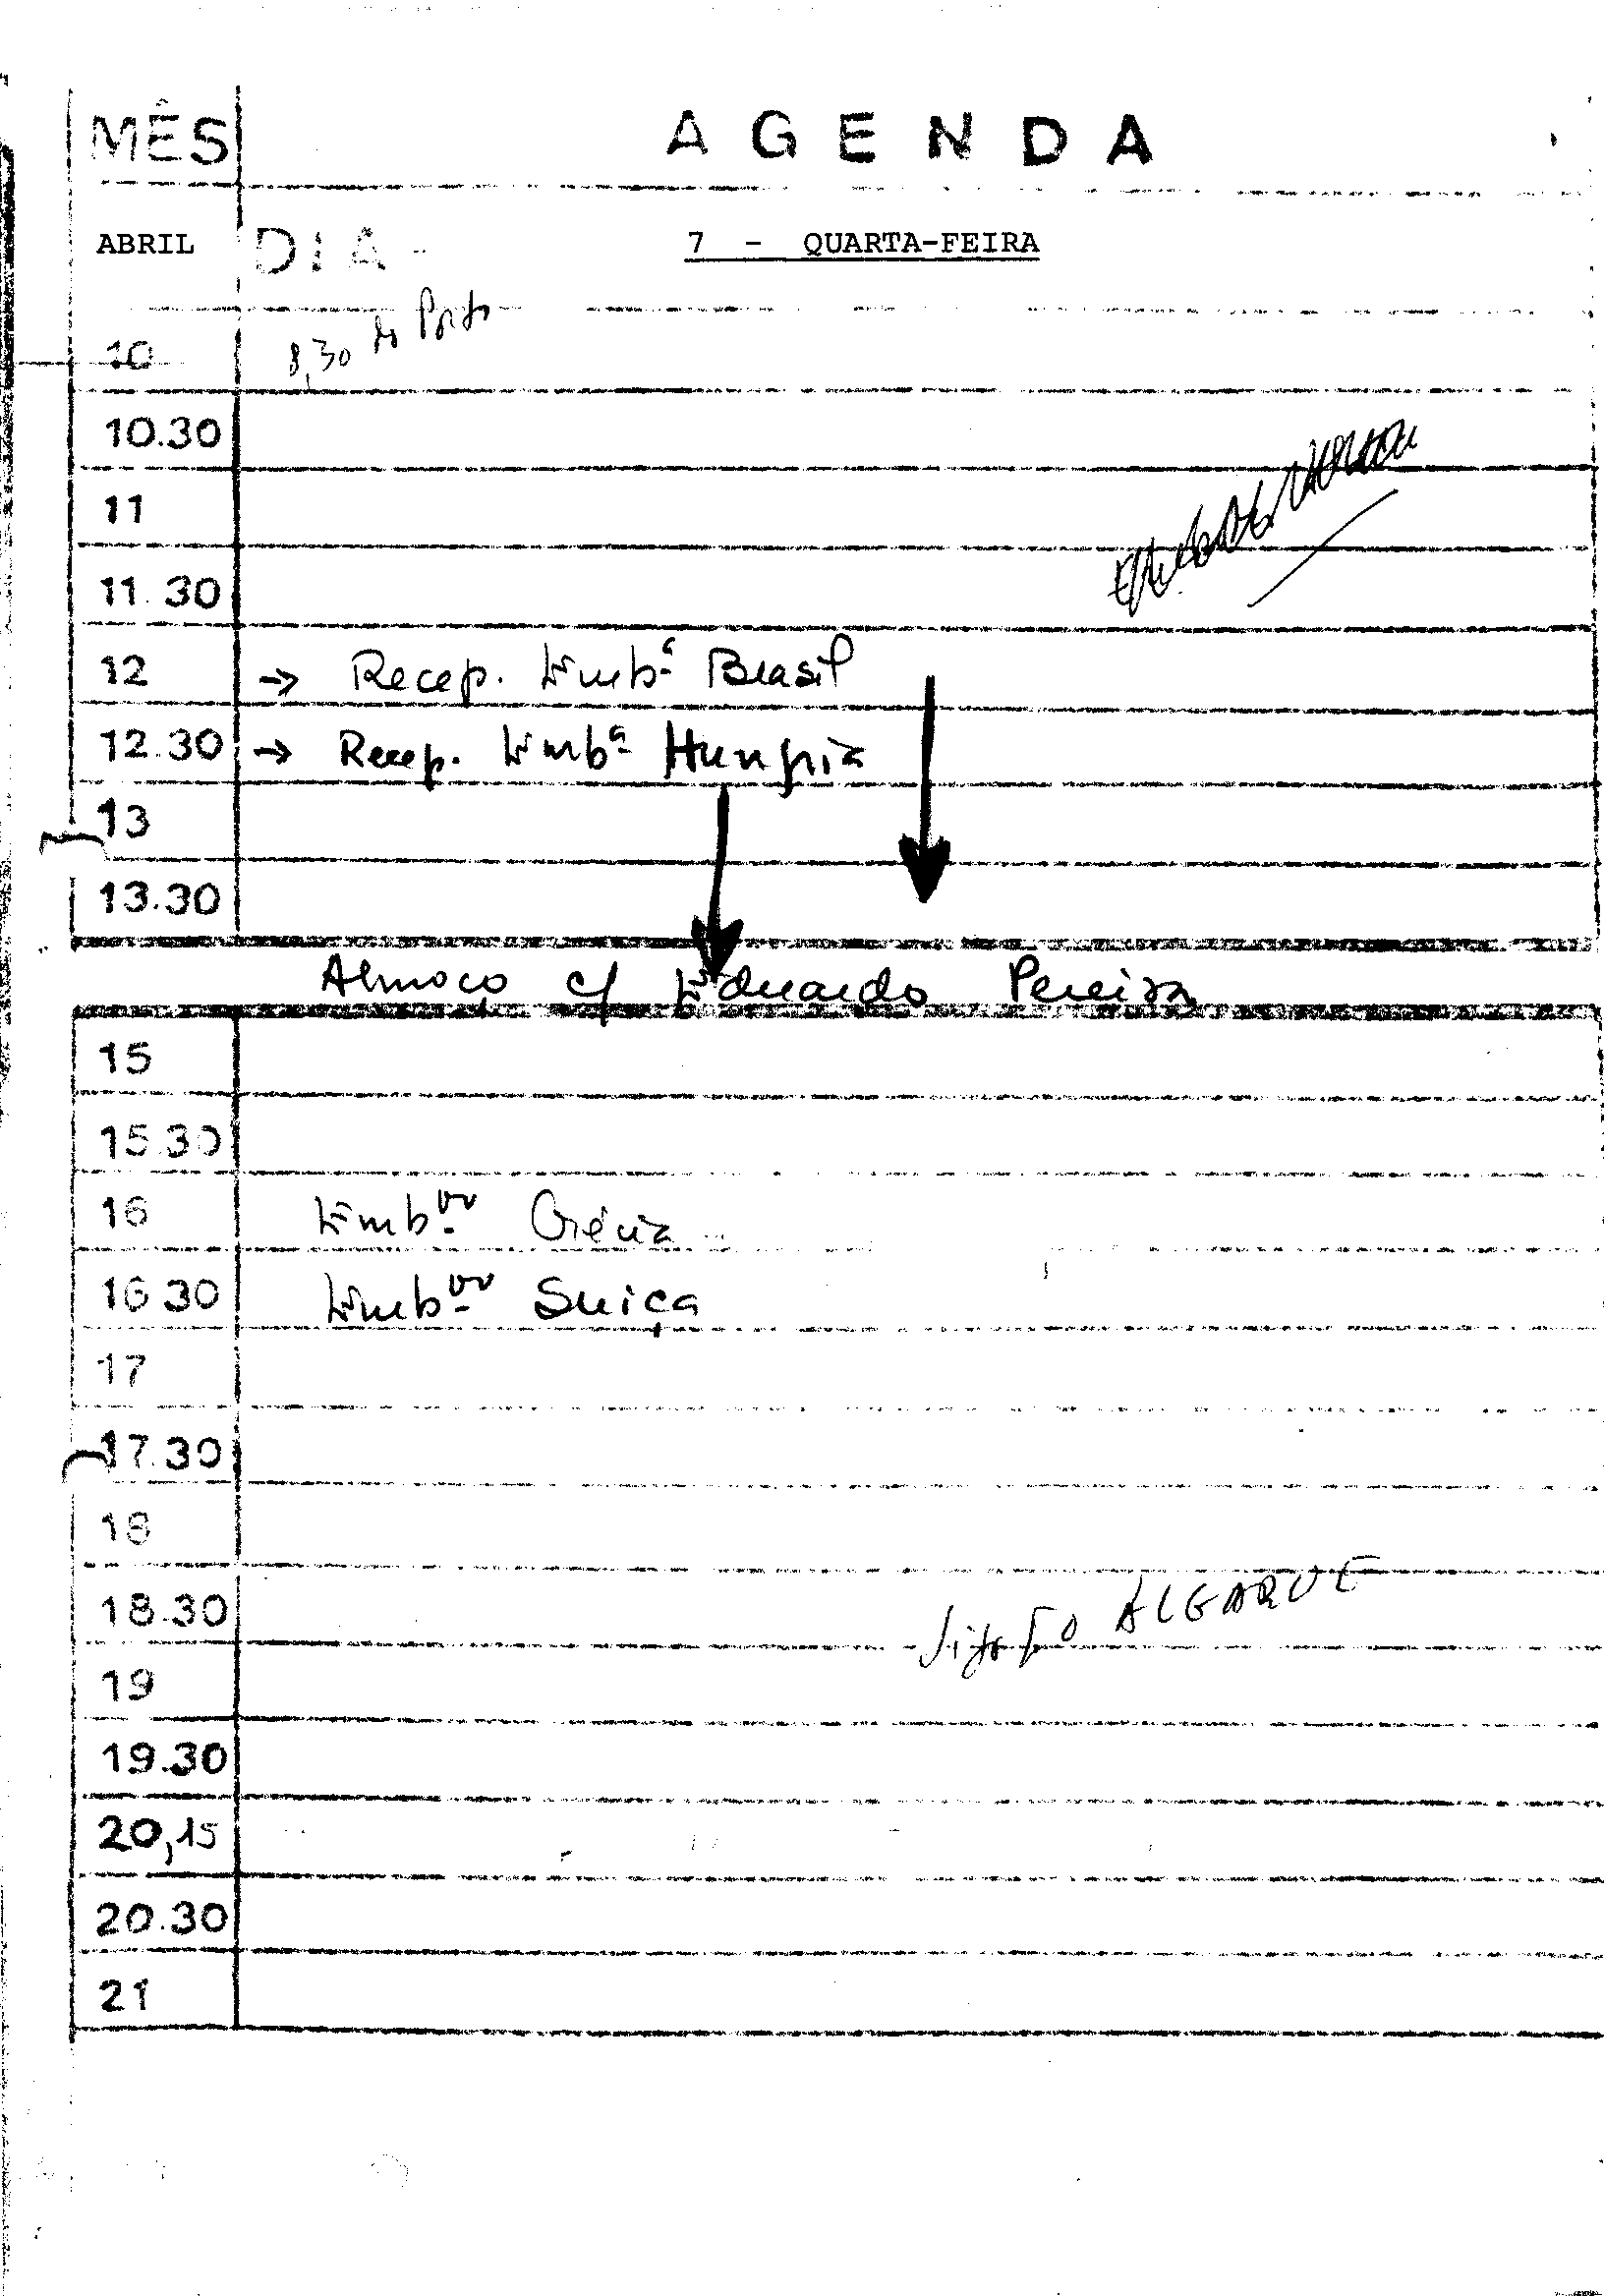 MÊS AGENDA
ABRIL DIA - 7 - QUARTA-FEIRA
10 8,30 do Porto
10.30
11
11.30
12 → Recep. Embª Brasil
12.30 → Recep. Embª Hungria
13
13.30
Almoço c/ Eduardo Pereira
15
15.30
16 Embor Grécia
16 30 Embor Suiça
17
17.30
18
18.30 ALGARVE
19
19.30
20,15
20.30
21